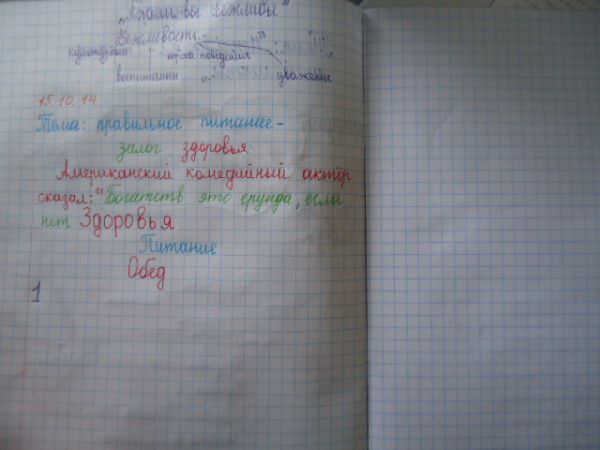 вежливы"
Вежливость
культурный норма поведения
воспитанны уважение
15.10.14
Тема: правильное питание-
залог здоровья
Американский комедийный актёр
сказал: "Богатств это ерунда, если
нет Здоровья
Питание
Обед
1